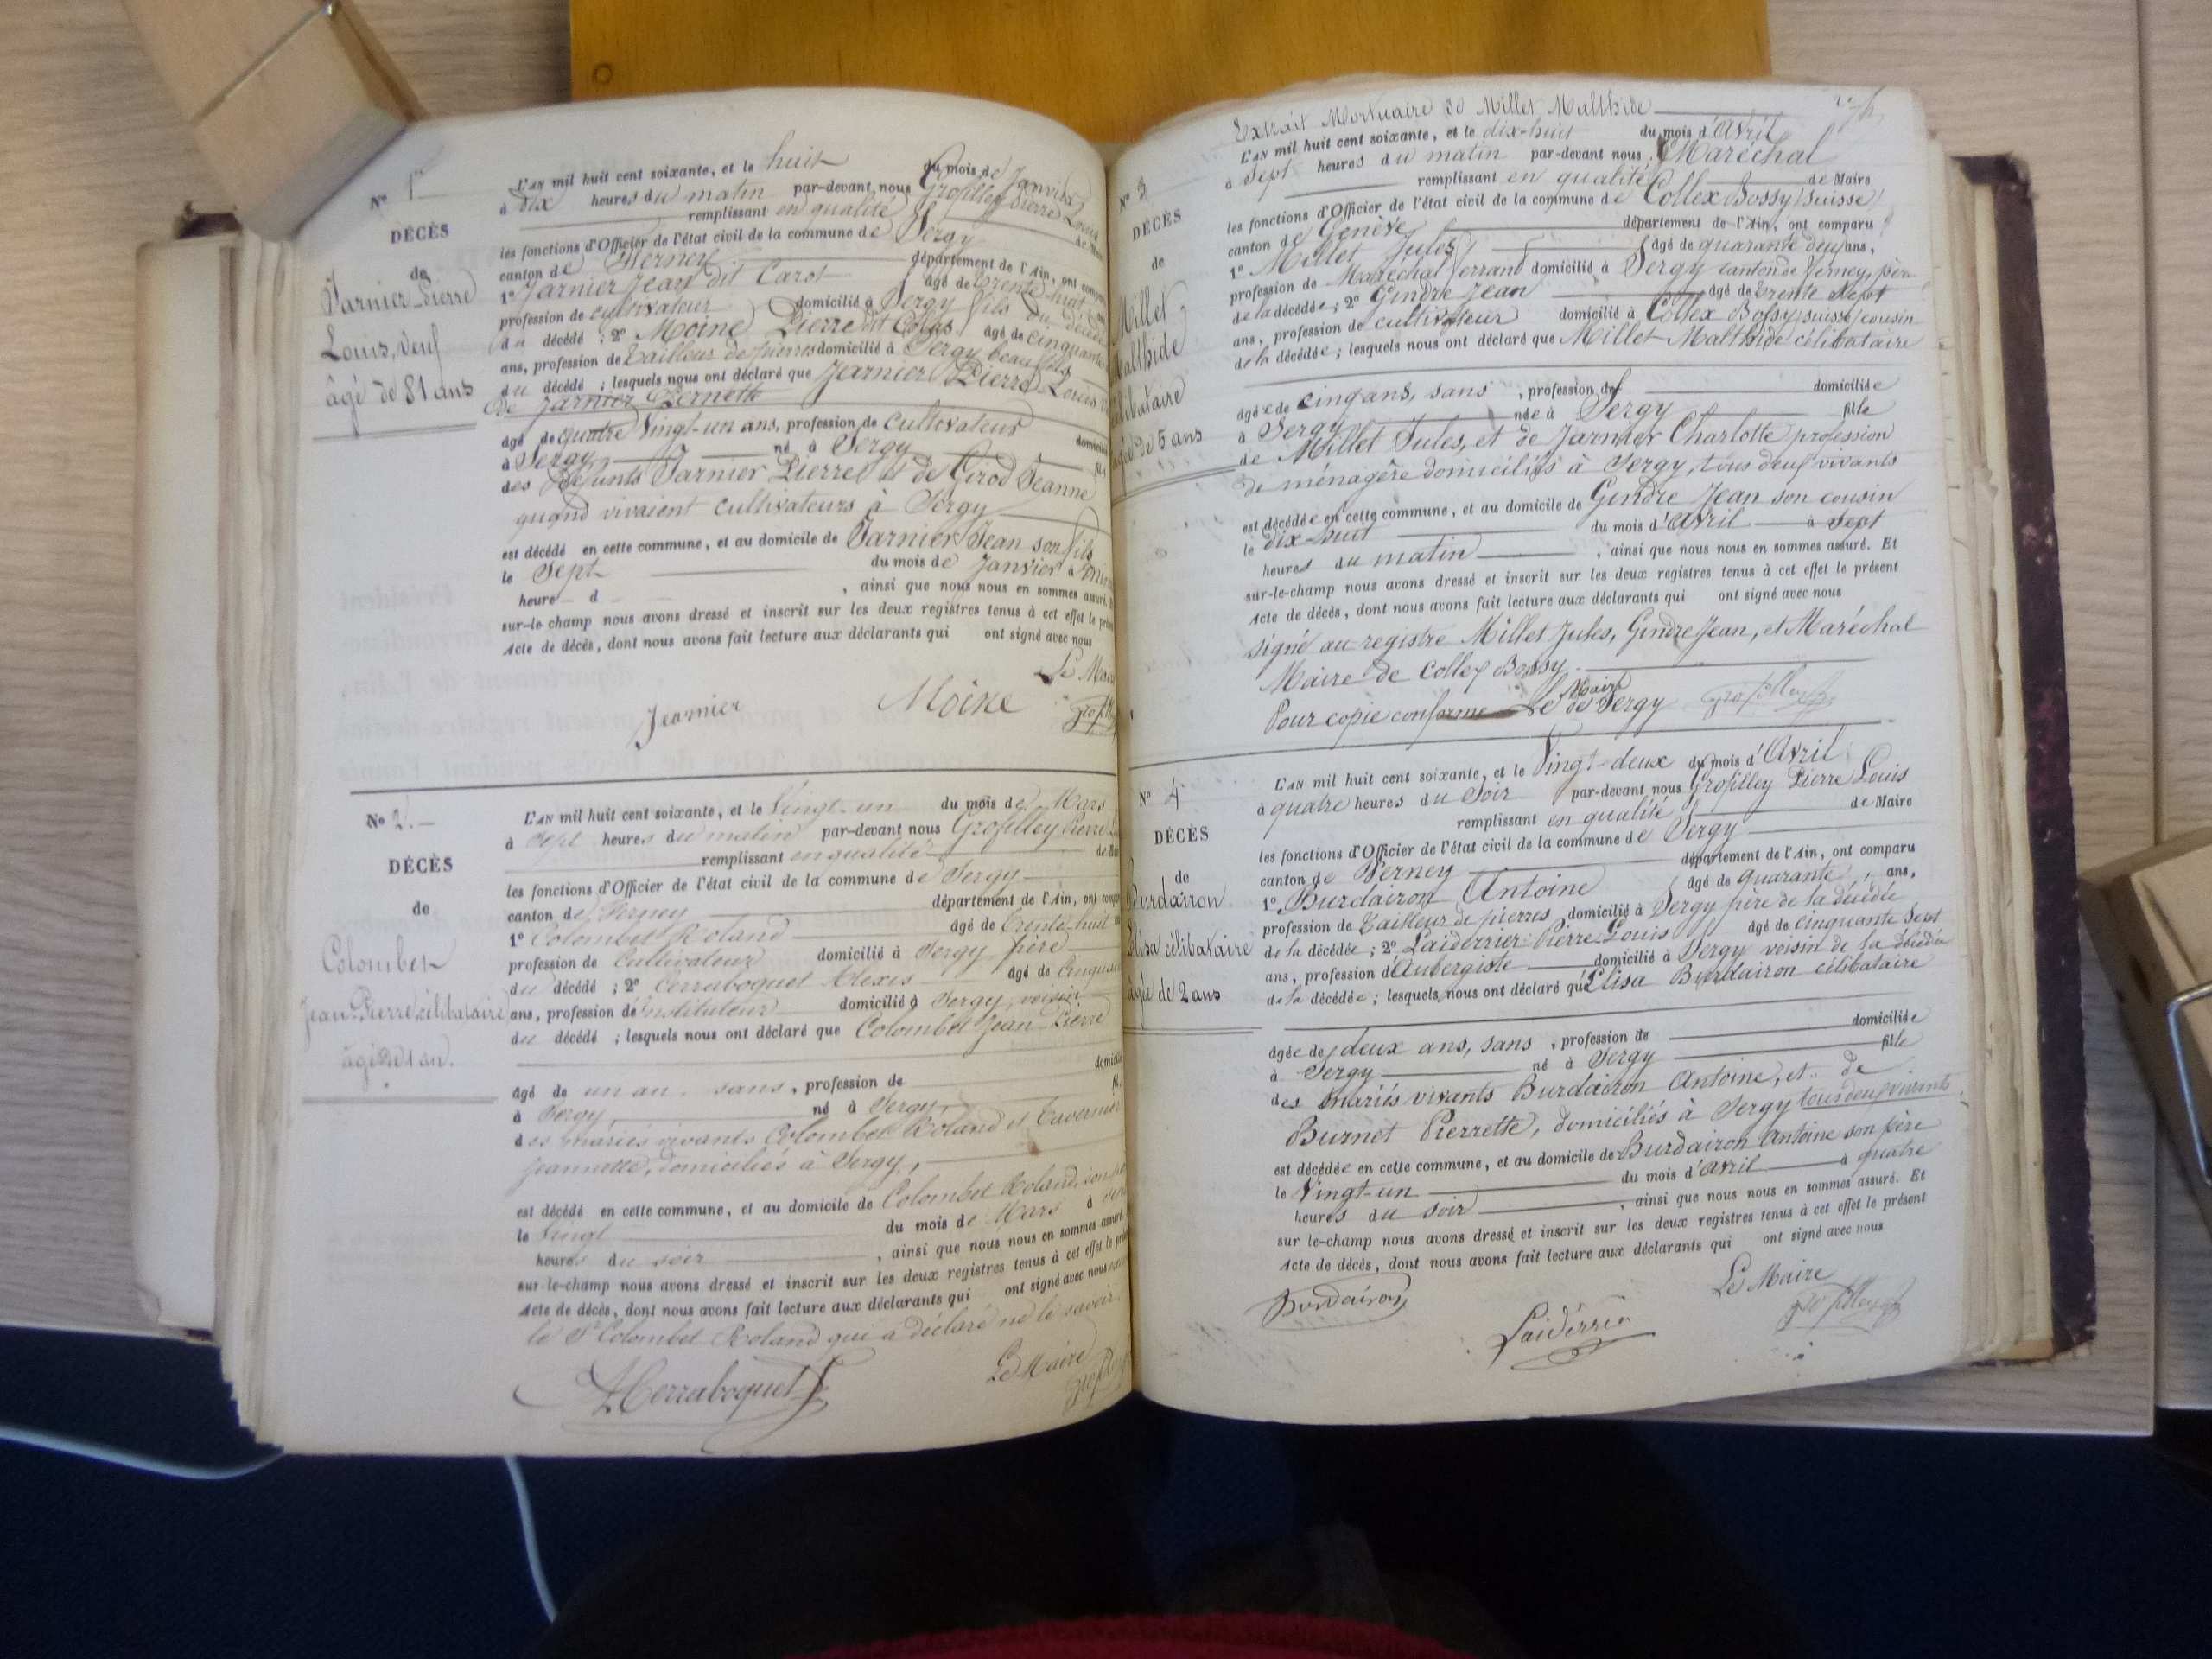 N° 1er
DÉCÈS
de
Jarnier Pierre
Louis, veuf
âgé de 81 ans
L'AN mil huit cent soixante, et le huit du mois de Janvier
à dix heures du matin par-devant nous Grosfilley Pierre Louis
remplissant en qualité de Maire
les fonctions d'Officier de l'état civil de la commune de Sergy
canton de Ferney département de l'Ain, ont comparu
1° Jarnier Jean dit Carot âgé de trente-huit ans
profession de cultivateur domicilié à Sergy fils du décédé
du décédé ; 2° Moine Pierre dit Colas âgé de cinquante
ans, profession de tailleur de pierres domicilié à Sergy beau fils
du décédé ; lesquels nous ont déclaré que Jarnier Pierre Louis
de Jarnier Pernette
âgé de quatre Vingt-un ans, profession de cultivateur domicilié
à Sergy né à Sergy fils
des Défunts Jarnier Pierre et de Girod Jeanne
quand vivaient cultivateurs à Sergy
est décédé en cette commune, et au domicile de Jarnier Jean son fils
le Sept du mois de Janvier à
heure d , ainsi que nous nous en sommes assuré. Et
sur-le-champ nous avons dressé et inscrit sur les deux registres tenus à cet effet le présent
Acte de décès, dont nous avons fait lecture aux déclarants qui ont signé avec nous
Le Maire
Jearnier Moine
N° 2.
DÉCÈS
de
Colombet
Jean-Pierre célibataire
âgé de 1 an.
L'AN mil huit cent soixante, et le Vingt-un du mois de Mars
à Sept heures du matin par-devant nous Grosfilley Pierre
remplissant en qualité de Maire
les fonctions d'Officier de l'état civil de la commune de Sergy
canton de Ferney département de l'Ain, ont comparu
1° Colombet Roland âgé de trente-huit
profession de Cultivateur domicilié à Sergy père
du décédé ; 2° Cerraboquet Alexis âgé de Cinquante
ans, profession d'Instituteur domicilié à Sergy, voisin
du décédé ; lesquels nous ont déclaré que Colombet Jean Pierre
domicilié
âgé de un an. sans, profession de
à Sergy né à Sergy fils
des mariés vivants Colombet Roland et Tavernier
Jeannette, domiciliés à Sergy,
est décédé en cette commune, et au domicile de Colombet Roland, son
le Vingt du mois de Mars à
heures du soir , ainsi que nous nous en sommes assuré.
sur-le-champ nous avons dressé et inscrit sur les deux registres tenus à cet effet le présent
Acte de décès, dont nous avons fait lecture aux déclarants qui ont signé avec nous
le Sr Colombet Roland qui a déclaré ne le savoir
Le Maire
Extrait Mortuaire de Millet Malthide
N° 3
DÉCÈS
de
Millet
Malthide
célibataire
âgée de 5 ans
L'AN mil huit cent soixante, et le dix-huit du mois d'Avril
à Sept heures du matin par-devant nous Maréchal
remplissant en qualité de Maire
les fonctions d'Officier de l'état civil de la commune de Collex Bossy (Suisse)
canton de Genève département de l'Ain, ont comparu
1° Millet Jules âgé de quarante deux ans,
profession de Maréchal ferrant domicilié à Sergy canton de Ferney, père
de la décédée ; 2° Gindre Jean âgé de trente Sept
ans, profession de cultivateur domicilié à Collex Bossy, suisse, cousin
de la décédée ; lesquels nous ont déclaré que Millet Malthide célibataire
âgée de cinq ans, sans , profession de domiciliée
à Sergy née à Sergy fille
de Millet Jules, et de Jarnier Charlotte profession
de ménagère domiciliés à Sergy, tous deux vivants
est décédée en cette commune, et au domicile de Gindre Jean son cousin
le dix-huit du mois d'Avril à sept
heures du matin , ainsi que nous nous en sommes assuré. Et
sur-le-champ nous avons dressé et inscrit sur les deux registres tenus à cet effet le présent
Acte de décès, dont nous avons fait lecture aux déclarants qui ont signé avec nous
signé au registre Millet Jules, Gindre Jean, et Maréchal
Maire de Collex Bossy.
Pour copie conforme Le Maire de Sergy
N° 4
DÉCÈS
de
Burdairon
Elisa célibataire
âgée de 2 ans
L'AN mil huit cent soixante, et le Vingt-deux du mois d'Avril
à quatre heures du Soir par-devant nous Grosfilley Pierre Louis
remplissant en qualité de Maire
les fonctions d'Officier de l'état civil de la commune de Sergy
canton de Ferney département de l'Ain, ont comparu
1° Burdairon Antoine âgé de quarante , ans,
profession de tailleur de pierres domicilié à Sergy père de la décédée
de la décédée ; 2° Laiderrier Pierre Louis âgé de cinquante Sept
ans, profession d'Aubergiste domicilié à Sergy voisin de la décédée
de la décédée ; lesquels nous ont déclaré que Elisa Burdairon célibataire
domiciliée
âgée de deux ans, sans , profession de
à Sergy né à Sergy fille
des mariés vivants Burdairon Antoine, et de
Burnet Pierrette, domiciliés à Sergy tous deux vivants
est décédée en cette commune, et au domicile de Burdairon Antoine son père
le Vingt-un du mois d'Avril à quatre
heures du soir , ainsi que nous nous en sommes assuré. Et
sur le-champ nous avons dressé et inscrit sur les deux registres tenus à cet effet le présent
Acte de décès, dont nous avons fait lecture aux déclarants qui ont signé avec nous
Le Maire
Burdairon